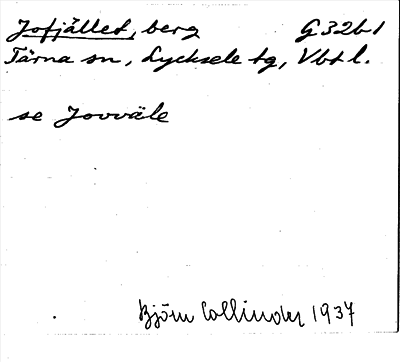 Jofjället, berg G 32b1
Tärna sn, Lycksele tg, Vbtl.
se Jovväle
Björn Collinder 1937